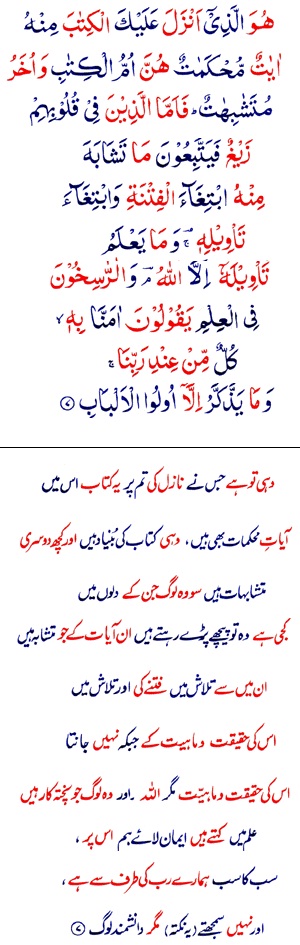 هُوَ الَّذِیْۤ اَنْزَلَ عَلَیْكَ الْكِتٰبَ مِنْهُ
اٰیٰتٌ مُّحْكَمٰتٌ هُنَّ اُمُّ الْكِتٰبِ وَاُخَرُ
مُتَشٰبِهٰتٌ ؕ فَاَمَّا الَّذِیْنَ فِیْ قُلُوْبِهِمْ
زَیْغٌ فَیَتَّبِعُوْنَ مَا تَشَابَهَ
مِنْهُ ابْتِغَآءَ الْفِتْنَةِ وَابْتِغَآءَ
تَاْوِیْلِهٖ ۚ وَمَا یَعْلَمُ
تَاْوِیْلَهٗۤ اِلَّا اللّٰهُ ۘ وَالرّٰسِخُوْنَ
فِی الْعِلْمِ یَقُوْلُوْنَ اٰمَنَّا بِهٖ ۙ
كُلٌّ مِّنْ عِنْدِ رَبِّنَا ۚ
وَمَا یَذَّكَّرُ اِلَّاۤ اُولُوا الْاَلْبَابِ ﴿۷﴾
وہی تو ہے جس نے نازل کی تم پر یہ کتاب اس میں
آیاتِ محکمات بھی ہیں، وہی کتاب کی بُنیاد ہیں اور کچھ دوسری
متشابہات ہیں سو وہ لوگ جن کے دلوں میں
کجی ہے وہ تو پیچھے پڑے رہتے ہیں ان آیات کے جو متشابہ ہیں
ان میں سے تلاش میں فتنے کی اور تلاش میں
اس کی حقیقت و ماہیت کے جبکہ نہیں جانتا
اس کی حقیقت و ماہیّت مگر اللہ ۔اور وہ لوگ جو پختہ کار ہیں
علم میں کہتے ہیں ایمان لائے ہم اس پر ،
سب کا سب ہمارے رب کی طرف سے ہے ،
اور نہیں سمجھتے (یہ نکتہ) مگر دانشمند لوگ ﴿۷﴾